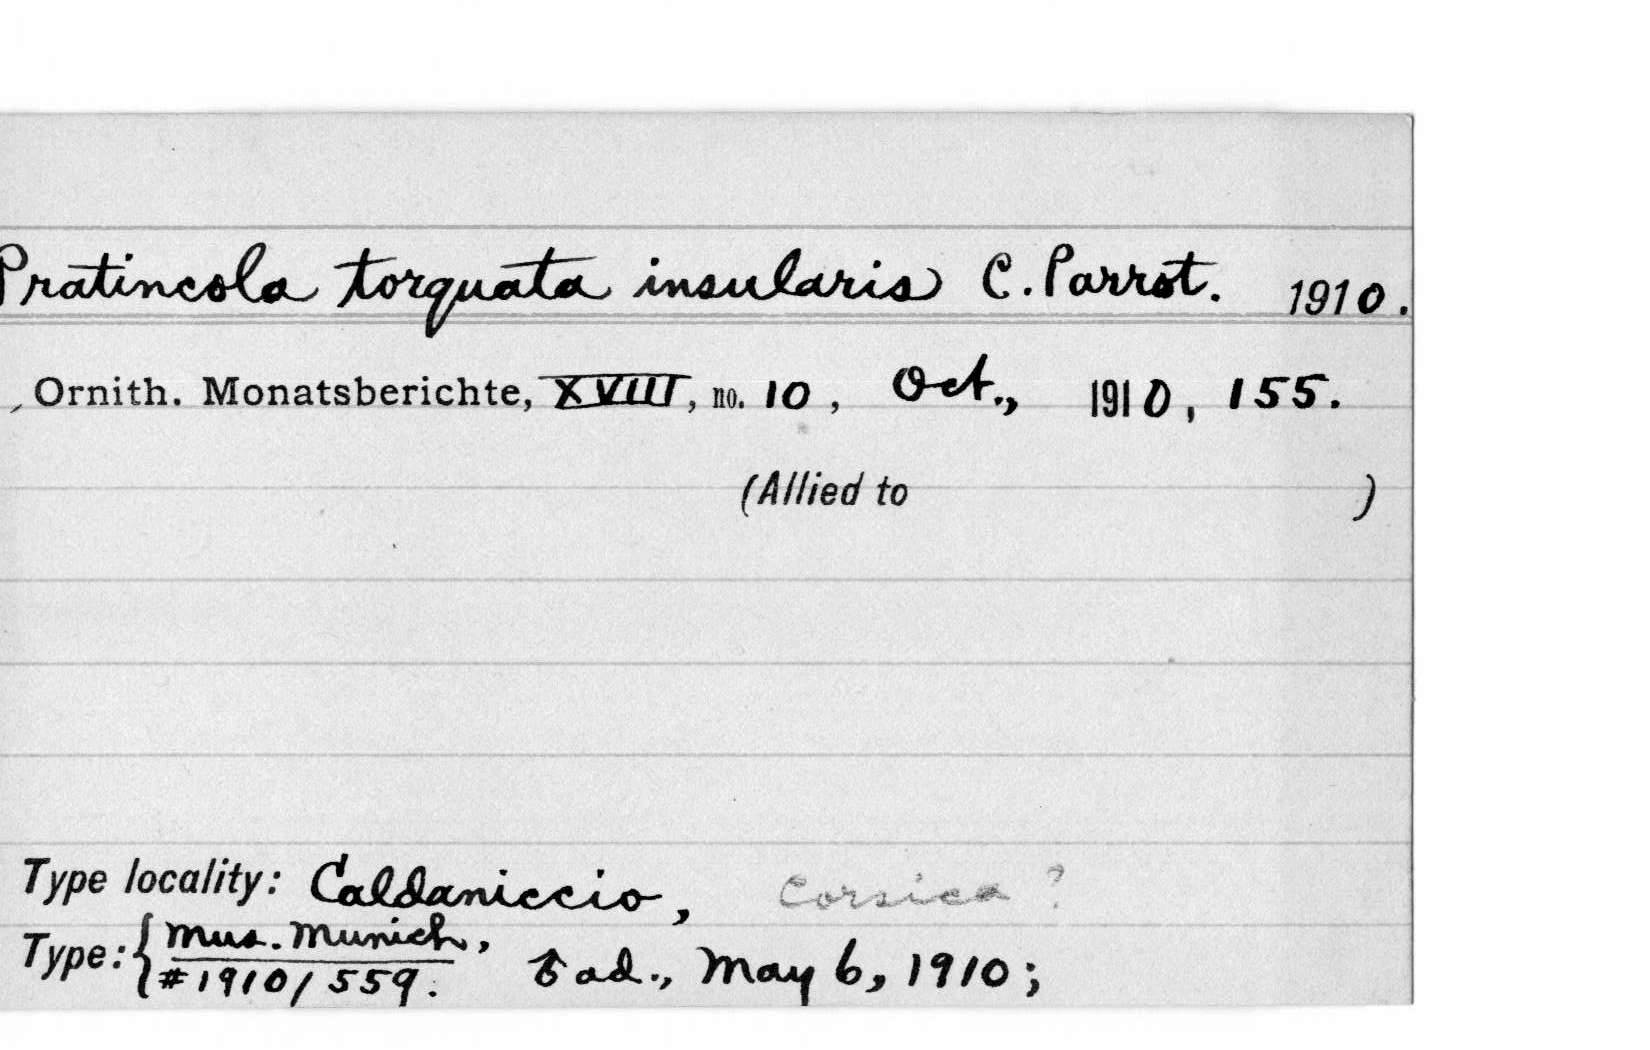 Pratincola torquata insularis C. Parrot. 1910.
, Ornith. Monatsberichte, XVIII, no. 10, Oct., 1910, 155.
(Allied to )
Type locality: Caldaniccio, Corsica ?
Type: { Mus. Munich,
#1910/559. ♂ ad., May 6, 1910;